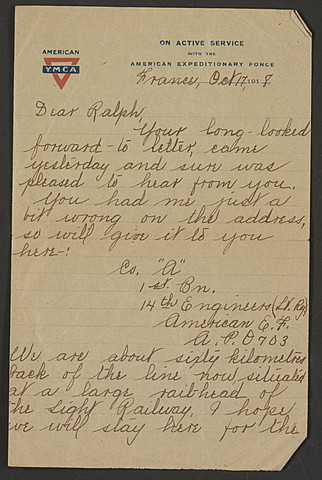 AMERICAN
YMCA
ON ACTIVE SERVICE
WITH THE
AMERICAN EXPEDITIONARY FORCE
France, Oct 17, 1918
Dear Ralph,
Your long-looked
forward-to letter, came
yesterday and sure was
pleased to hear from you.
You had me just a
bit wrong on the address,
so will give it to you
here-:
Co. "A"
1st Bn.
14th Engineers (Lt. Ry)
American E. F.
A. P. O 703
We are about sixty kilometres
back of the line now, situated
at a large railhead of
the Light Railway. I hope
we will stay here for the